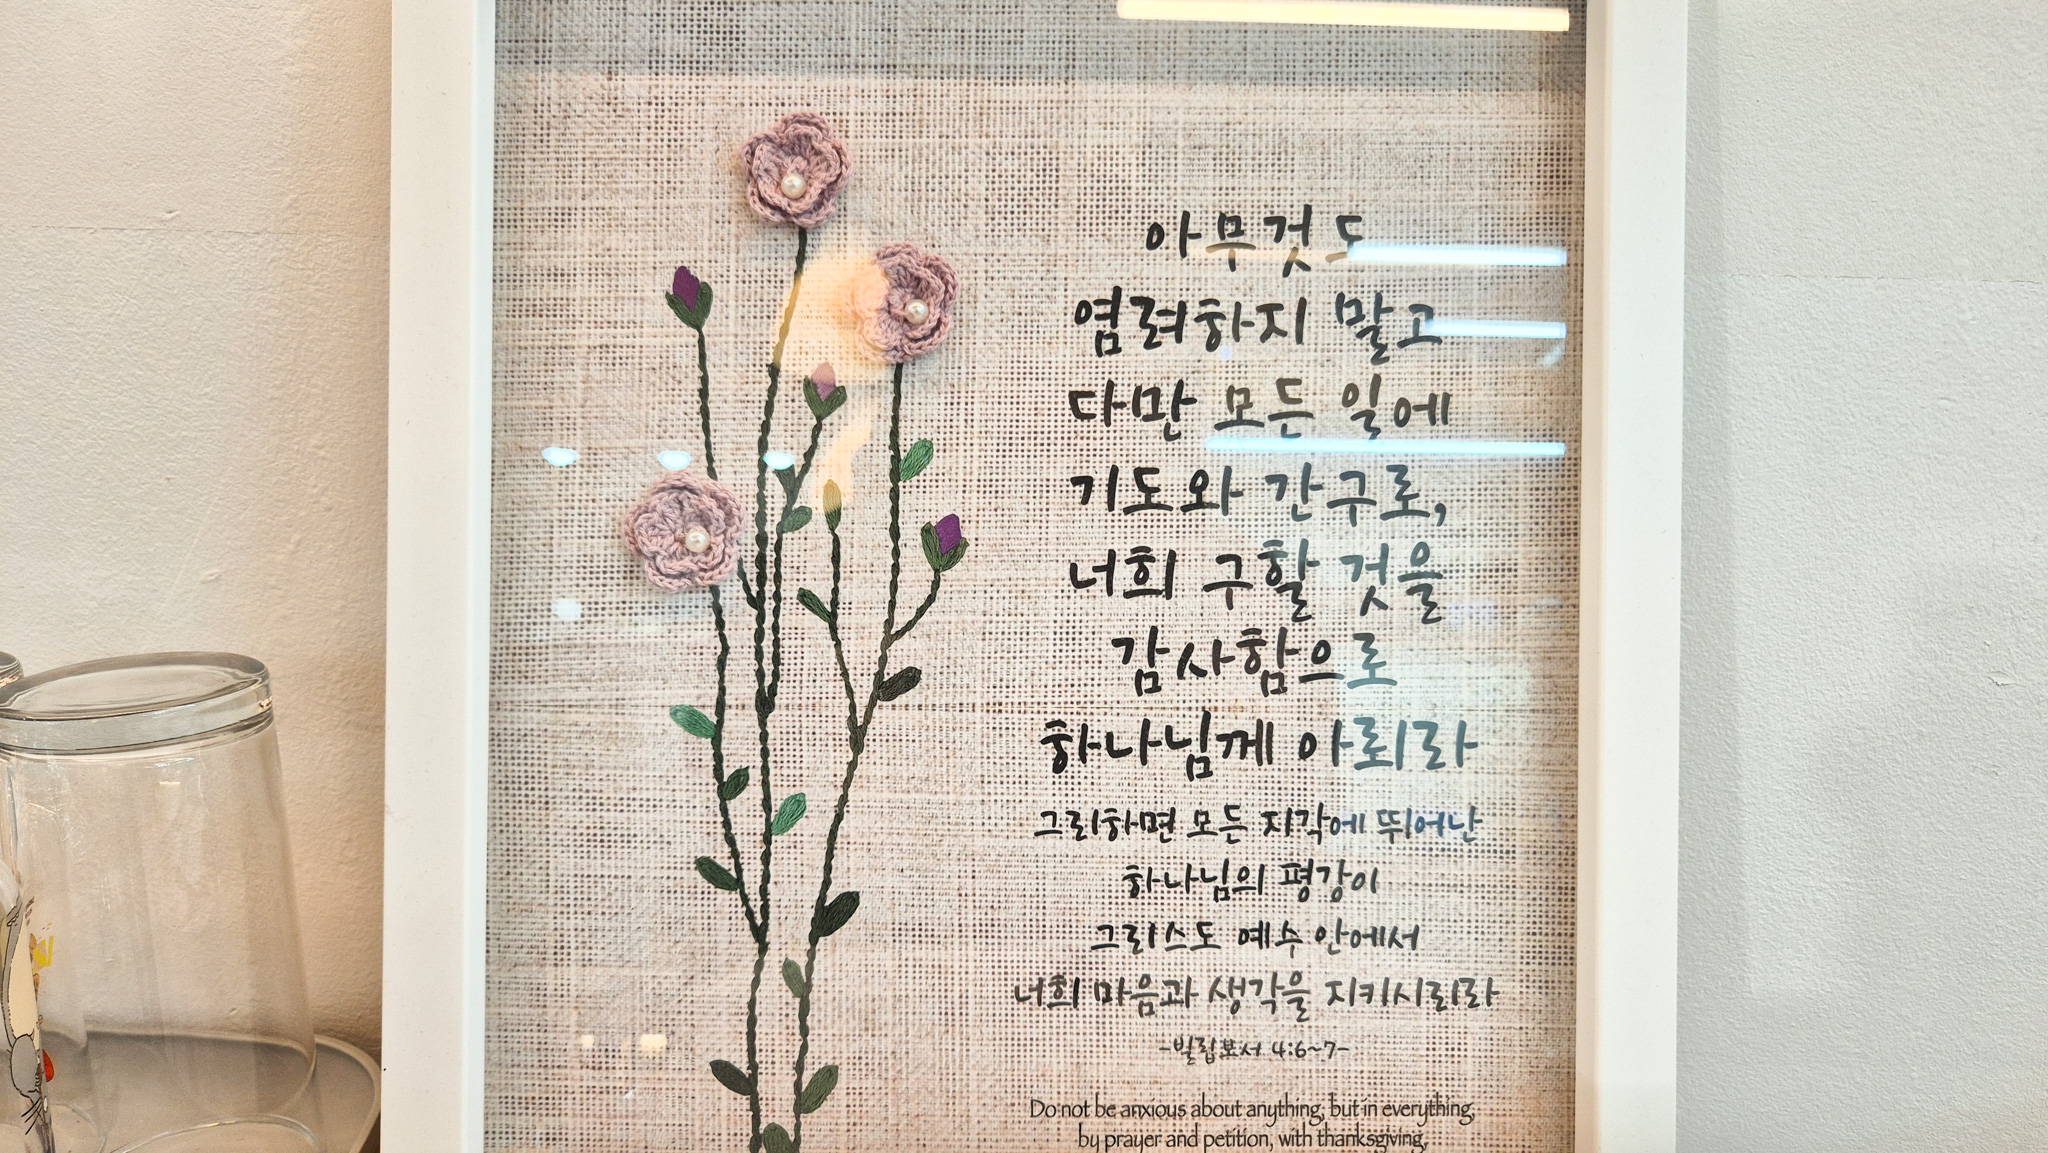 아무것도
염려하지 말고
다만 모든 일에
기도와 간구로,
너희 구할 것을
감사함으로
하나님께 아뢰라
그리하면 모든 지각에 뛰어난
하나님의 평강이
그리스도 예수 안에서
너희 마음과 생각을 지키시리라
-빌립보서 4:6~7-
Do not be anxious about anything, but in everything,
by prayer and petition, with thanksgiving,